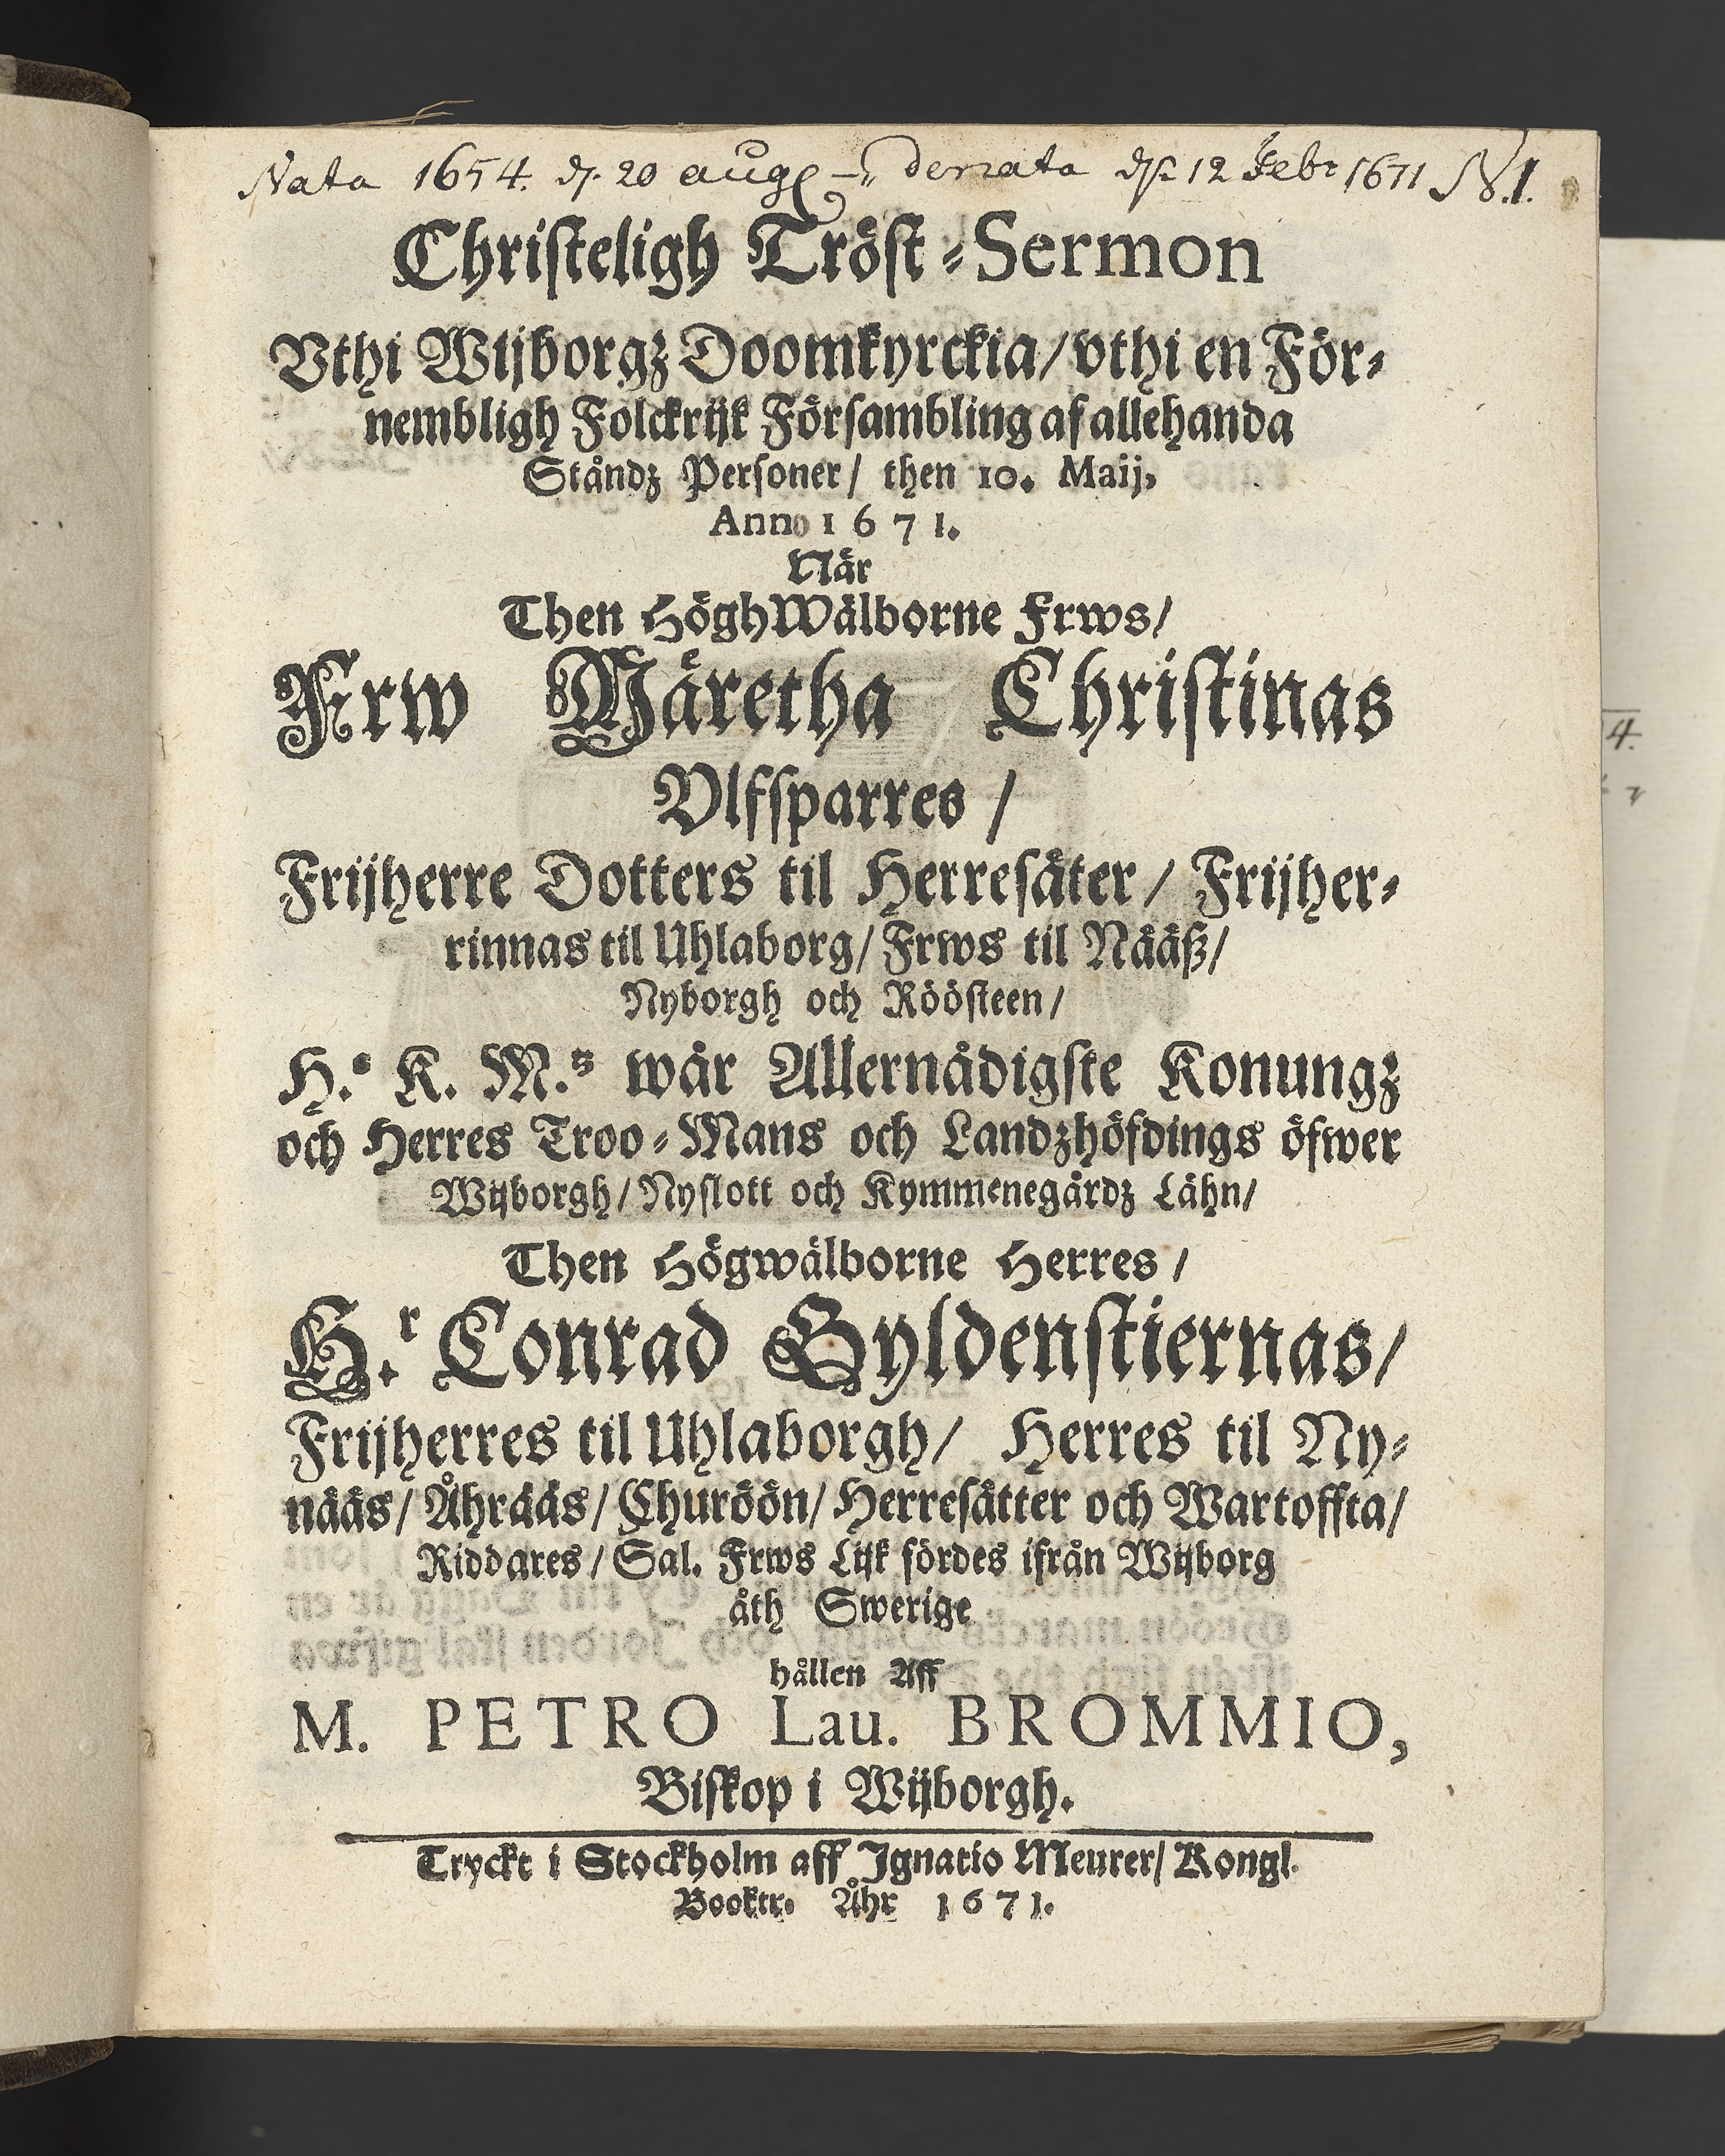 Nata 1654. d. 20 aug – denata d. 12 Febr 1671 N.1.
Christeligh Tröst-Sermon
Vthi Wijborgz Doomkyrckia/ vthi en För-
nembligh Folckrijk Försambling af allehanda
Ståndz Personer/ then 10. Maij,
Anno 1671.
När
Then HöghWälborne Frws/
Frw Märetha Christinas
Vlfsparres/
Frijherre Dotters til Herresäter/ Frijher-
rinnas til Uhlaborg/ Frws til Nääß/
Nyborgh och Röösteen/
H.s K. M.tz wår Allernådigste Konungz
och Herres Troo-Mans och Landzhöfdings öfwer
Wijborgh/ Nyslott och Kymmenegårdz Lähn/
Then Högwälborne Herres/
H.r Conrad Gyldenstiernas/
Frijherres til Uhlaborgh/ Herres til Ny-
nääs/ Åhrääs/ Churöön/ Herresätter och Wartoffta/
Riddares/ Sal. Frws Lijk fördes ifrån Wijborg
åth Swerige
hållen Aff
M. PETRO Lau. BROMMIO,
Biskop i Wijborgh.
Tryckt i Stockholm aff Ignatio Meurer/ Kongl.
Booktr. Åhr 1671.
4.